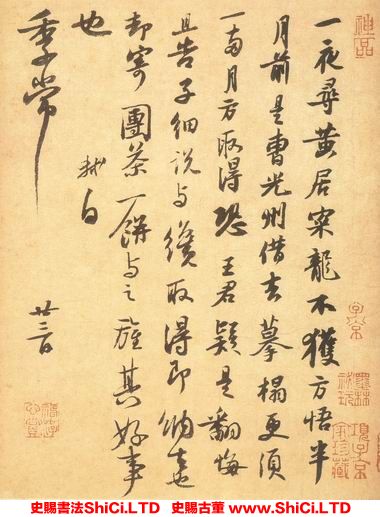 一夜尋黃居寀龍不獲方悟半
月前是曹光州借去摹榻更須
一兩月方取得恐王君疑是翻悔
且告子細說與纔取得即納去也
却寄團茶一餅與之旌其好事
也
軾白
季常
廿三日
神品
子京
項子京
家珍藏
史賜書法ShiCi.LTD 史賜古董 www.ShiCi.LTD